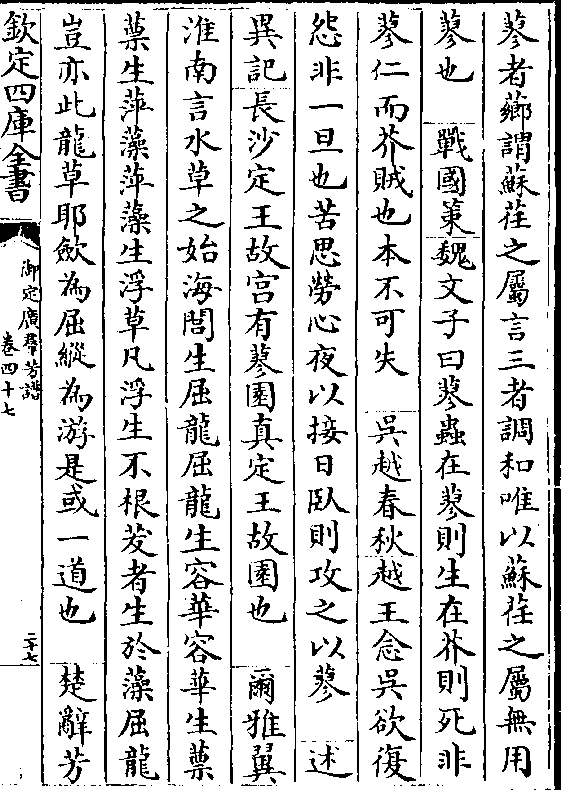 蓼者薌謂蘇荏之屬言三者調和唯以蘇荏之屬無用
蓼也　戰國策魏文子曰蓼蟲在蓼則生在芥則死非
蓼仁而芥賊也本不可失　吳越春秋越王念吳欲復
怨非一旦也苦思勞心夜以接日臥則攻之以蓼　述
異記長沙定王故宫有蓼園真定王故園也　爾雅翼
淮南言水草之始海閭生屈龍屈龍生容華容華生蔈
蔈生萍藻萍藻生浮草凡浮生不根茇者生於藻屈龍
豈亦此龍草耶歛為屈縱為游是或一道也　楚辭芳
欽定四庫全書
御定廣羣芳譜
卷四十七
二十七